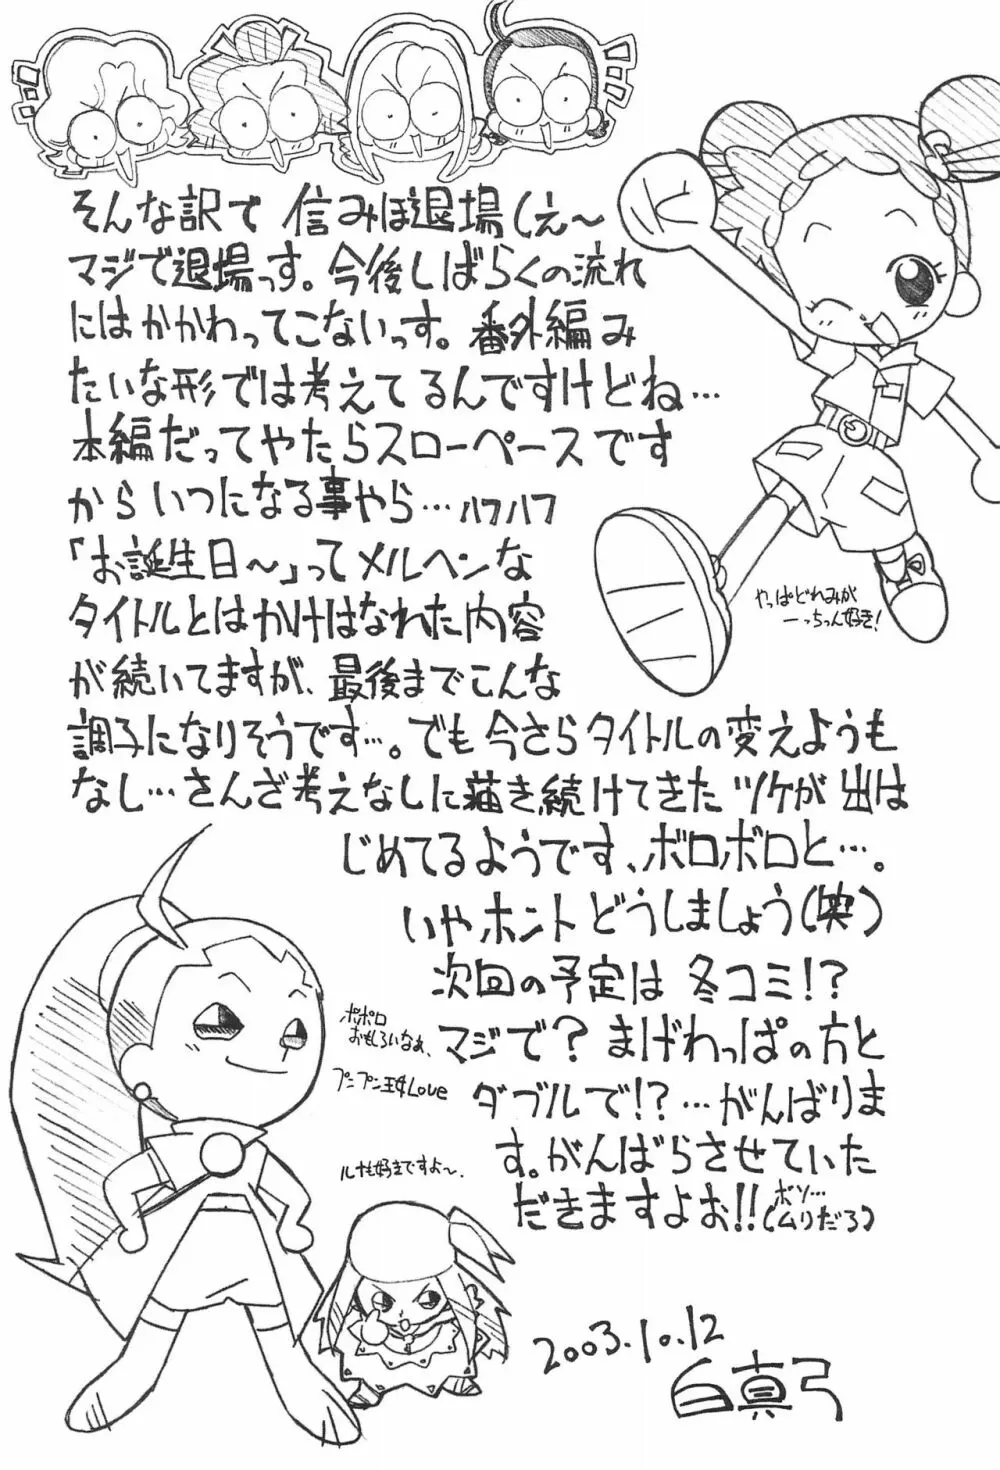 そんな訳で 信みほ退場しえ〜
マジで退場っす。今後しばらくの流れ
にはかかわってこないっす。番外編み
たいな形では考えてるんですけどね…
本編だってやたらスローペースです
から いつになる事やら…ハフハフ
「お誕生日〜」ってメルヘンな
タイトルとはかけはなれた内容
が続いてますが、最後までこんな
調子になりそうです…。でも今さらタイトルの変えようも
なし…さんざ考えなしに描き続けてきたツケが出は
じめてるようです、ボロボロと…。
いやホントどうしましょう(笑)
次回の予定は 冬コミ!?
マジで?まげわっぱの方と
ダブルで!?…がんばりま
す。がんばらさせていた
だきますよお!!(ボソ…
(ムリだろ)
やっぱどれみが
一っちっん好き!
ポポロ
おもしろいなぁ、
プニプニ王女Love
ルナも好きですよ〜.
2003.10.12
白真弓